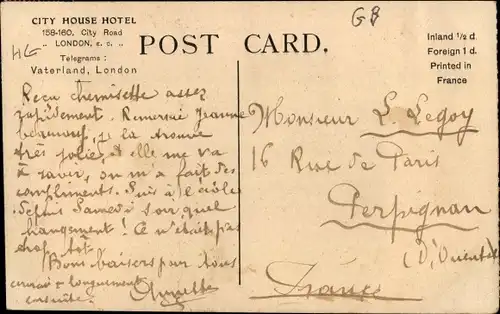 CITY HOUSE HOTEL
158-160, City Road
„ LONDON, E. C. „
Telegrams :
Vaterland, London
HG
POST CARD.
GB
Inland ½ d.
Foreign 1 d.
Printed in
France
Reçu chemisette assez
rapidement. Remercie Jeanne
beaucoup, je la trouve
très jolie, et elle me va
à ravir, on m'a fait des
compliments. Suis à l'école
depuis Samedi soir quel
changement ! Ce n'était pas
trop tôt.
Bons baisers pour tous
longuement
ensuite.
Monsieur L. Legoy
16 Rue de Paris
Perpignan
France